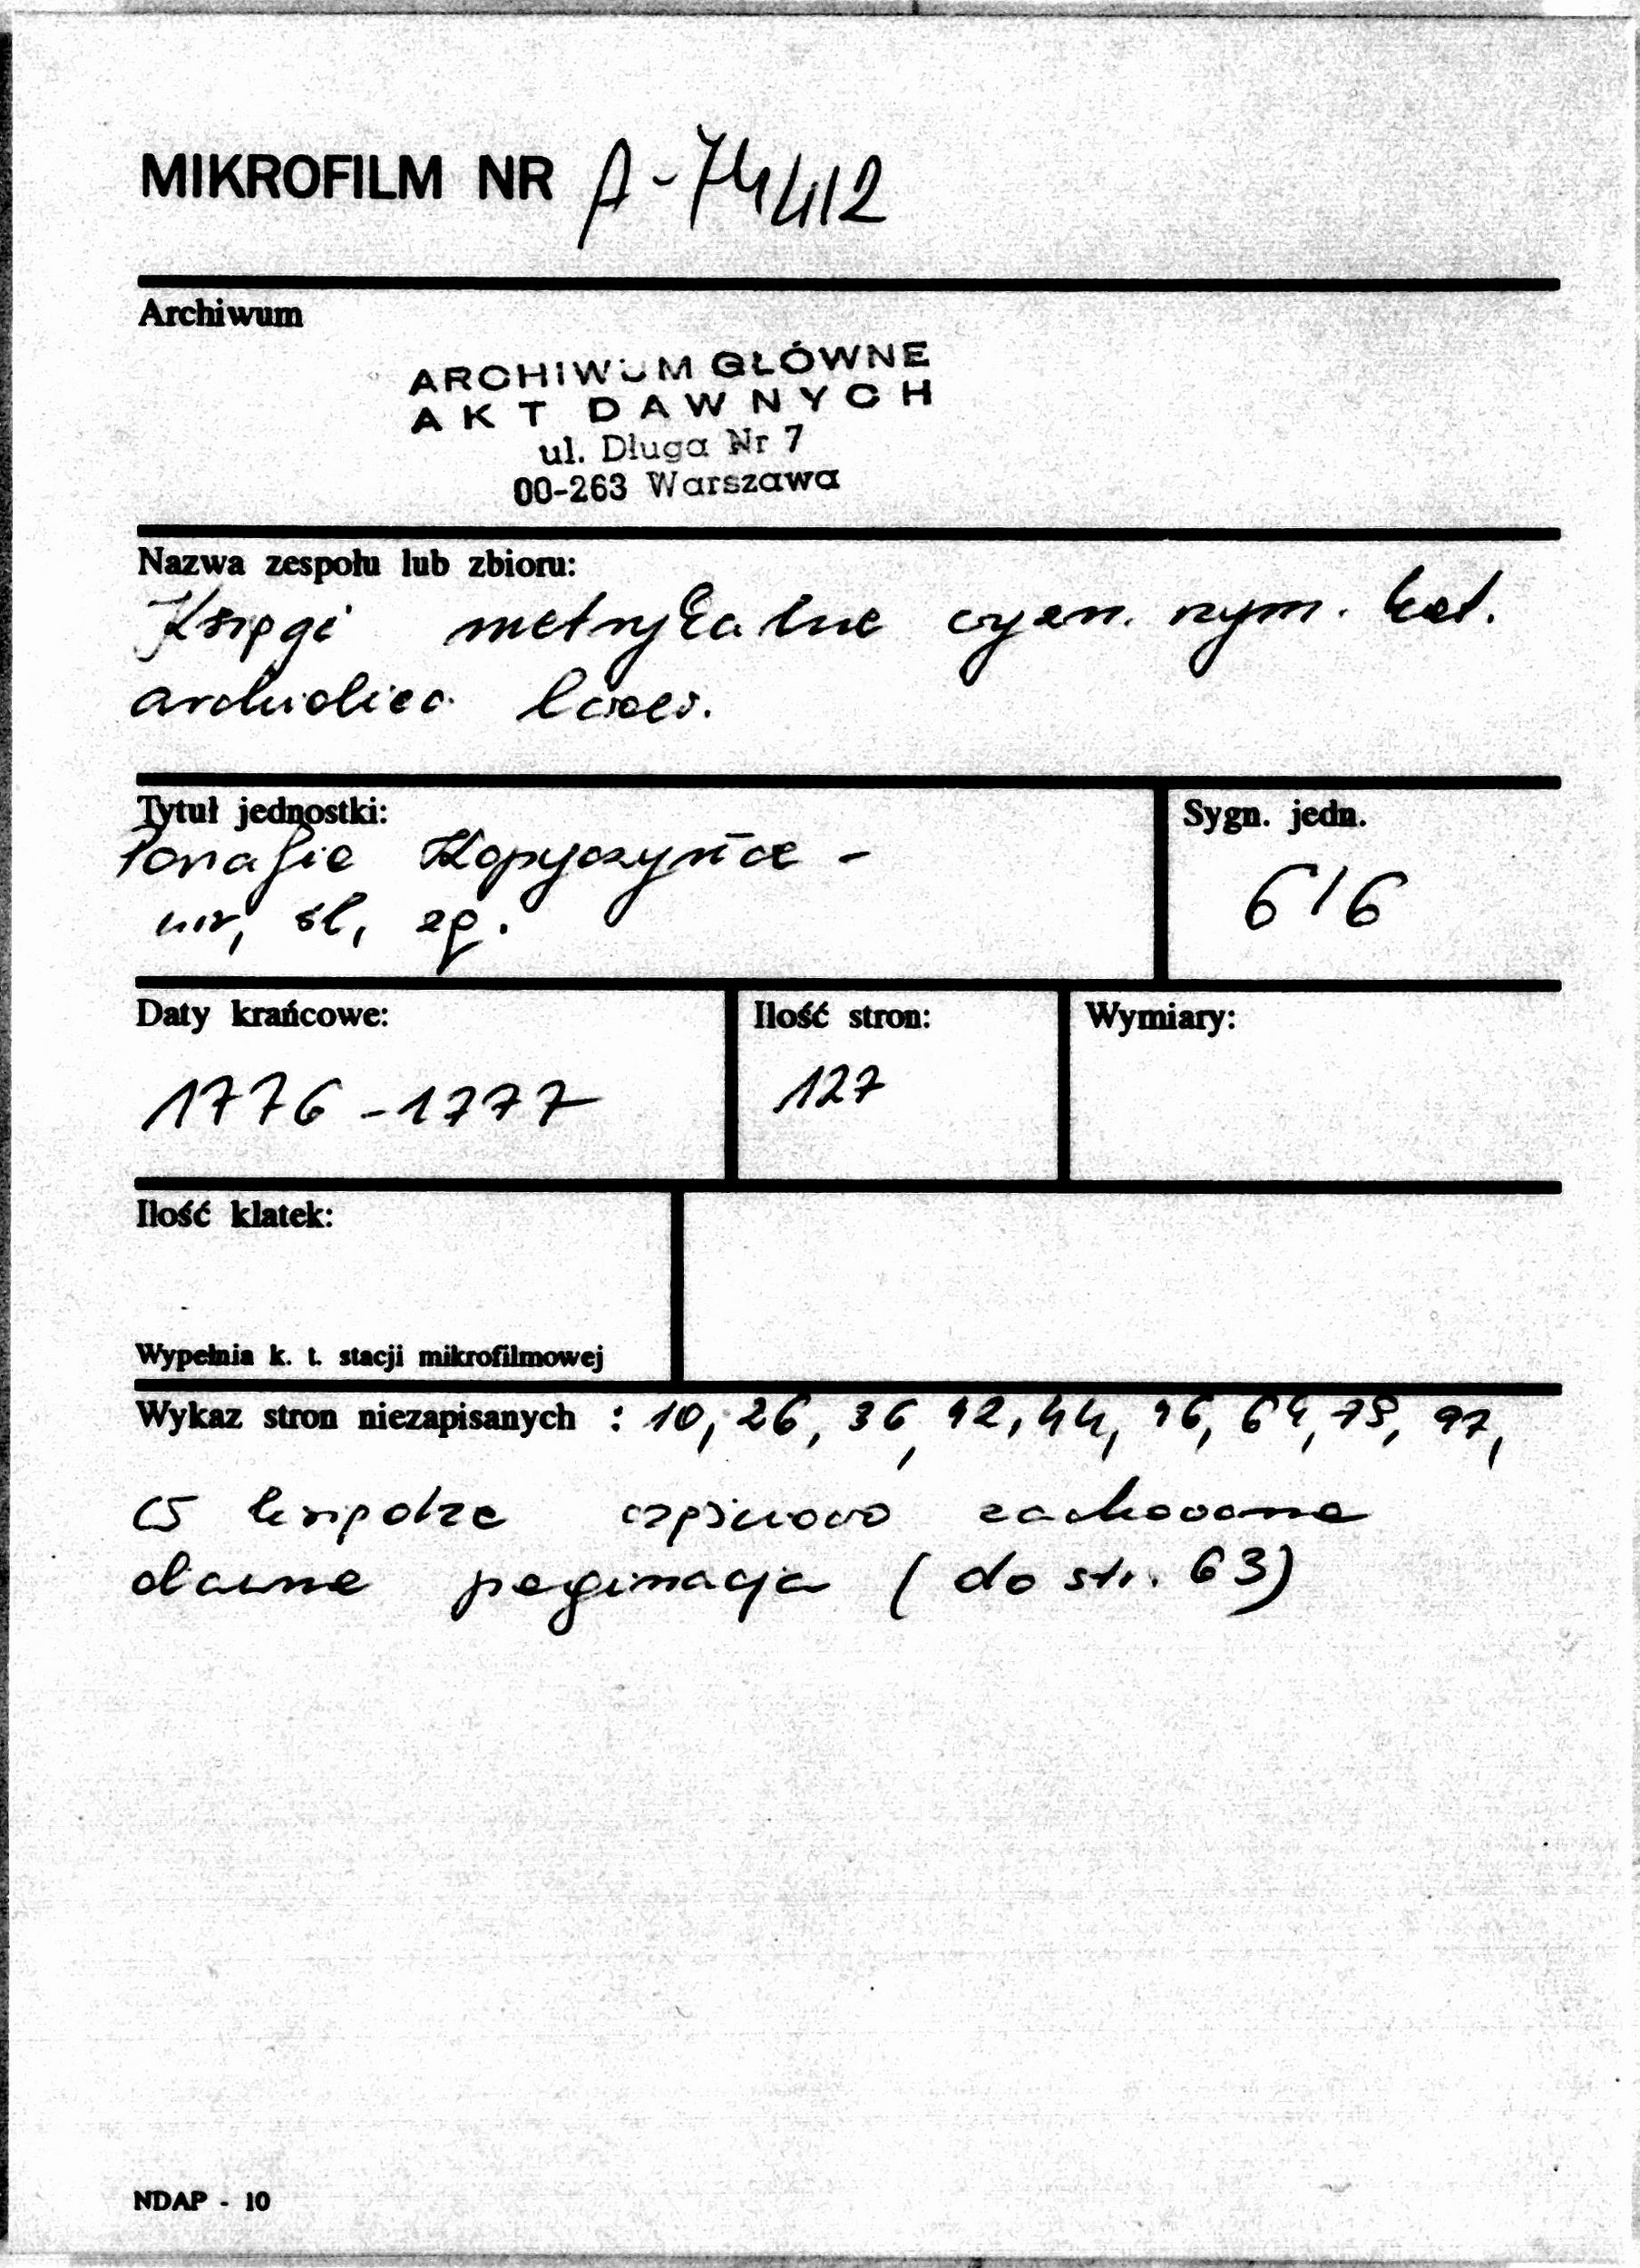 MIKROFILM NR A-74412
Archiwum
ARCHIWUM GŁÓWNE
AKT DAWNYCH
ul. Długa Nr 7
00-263 Warszawa
Nazwa zespołu lub zbioru:
Księgi metrykalne rzym. kat.
archidiec. lwow.
Tytuł jednostki:
Parafie Kopyczyńce -
ur, śl, zg.
Sygn. jedn.
616
Daty krańcowe:
1776 - 1777
Ilość stron:
127
Wymiary:
Ilość klatek:
Wypełnia k. t. stacji mikrofilmowej
Wykaz stron niezapisanych : 10, 26, 36, 42, 44, 46, 64, 78, 97,
W księdze częściowo zachowana
dawna paginacja (do str. 63)
NDAP - 10